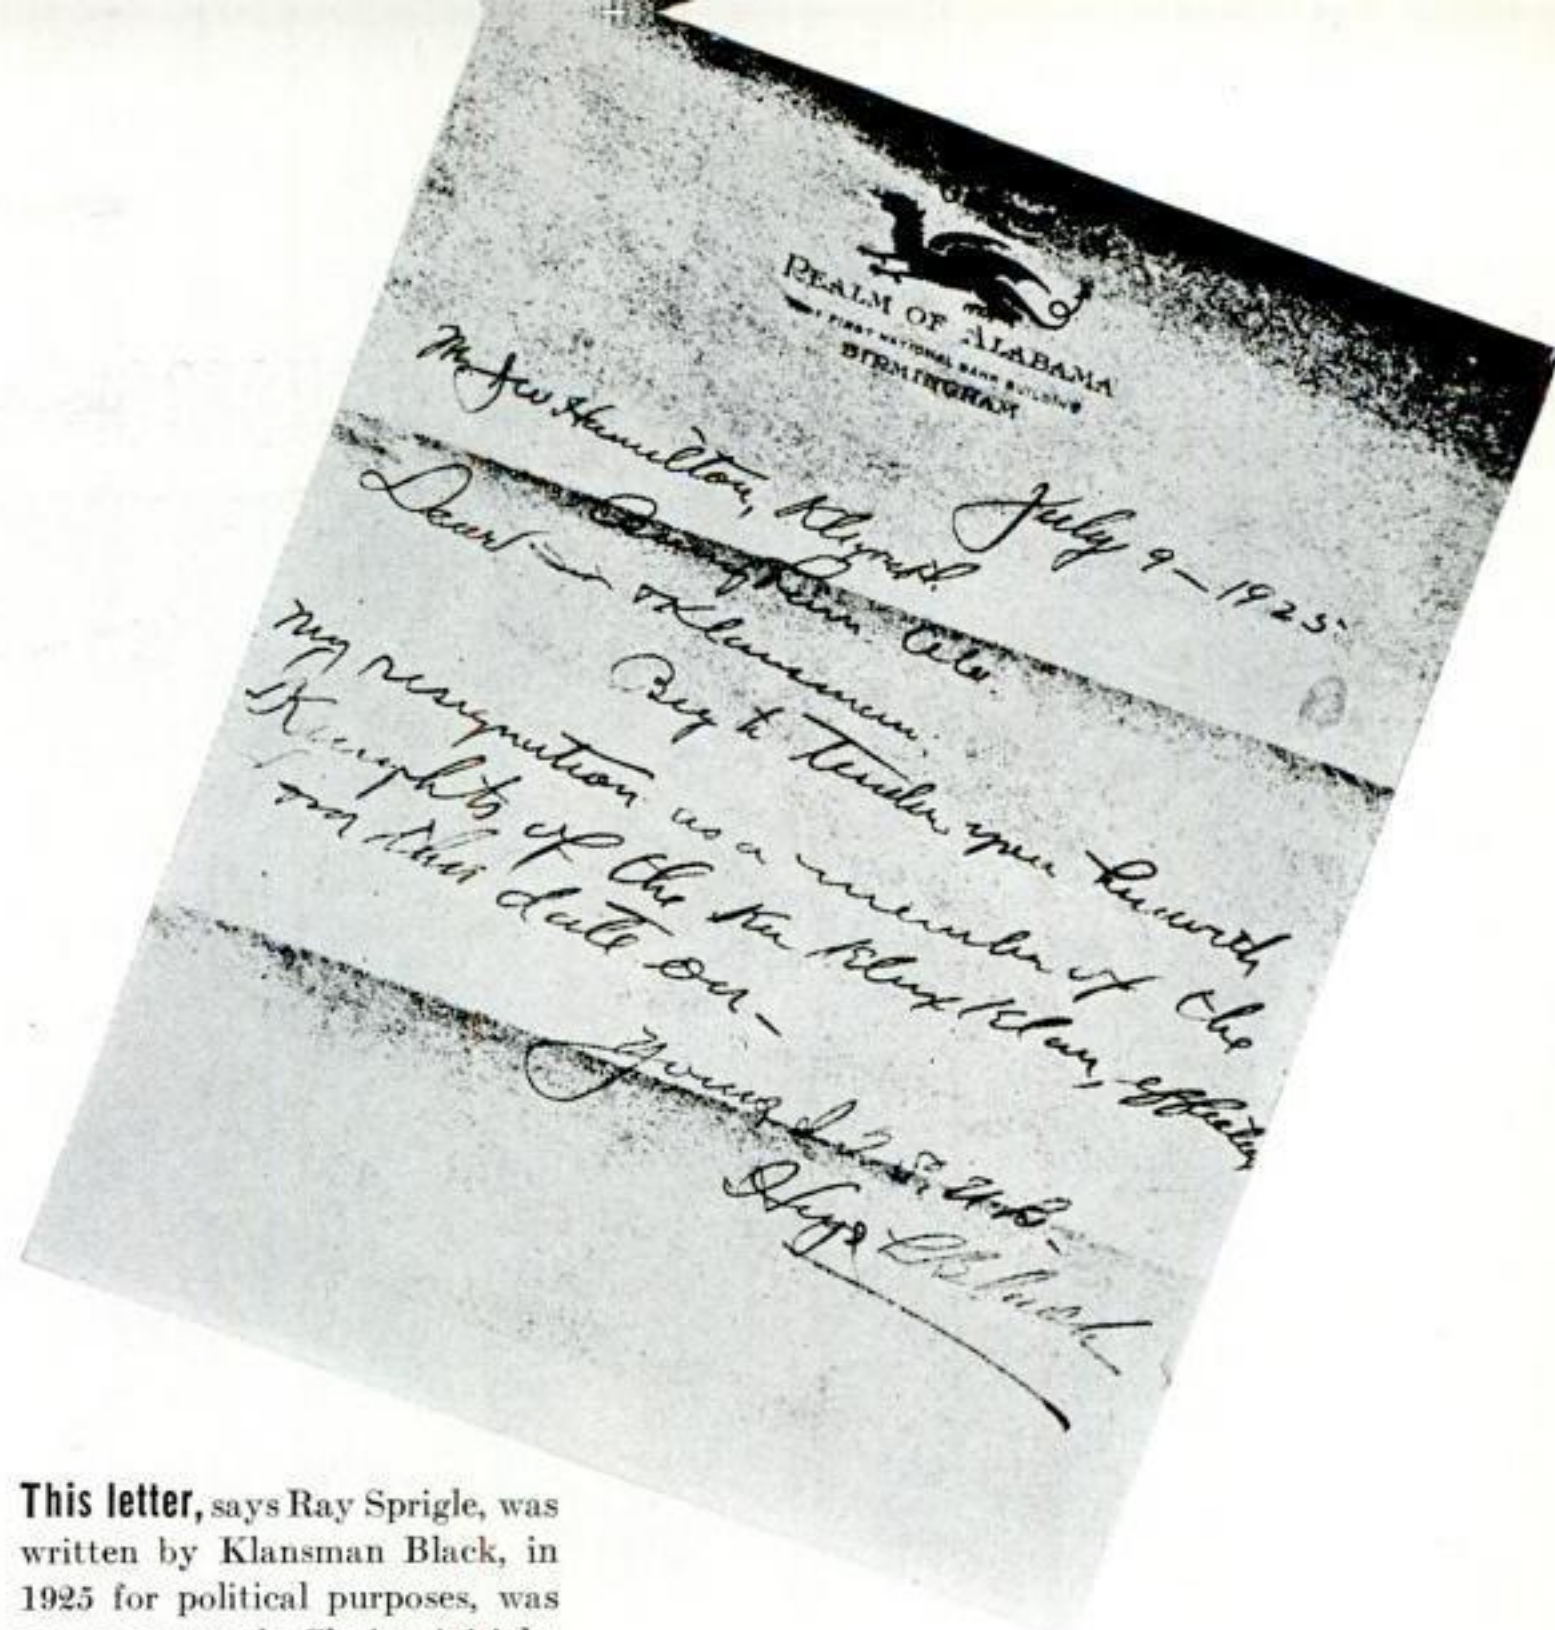 REALM OF ALABAMA
FIRST NATIONAL BANK BUILDING
BIRMINGHAM
July 9-1925
Mr. J W Hamilton, Kligrapp.
Birmingham. Ala.
Dear Sir & Klansman.
Beg to tender you herewith
my resignation as a member of the
Knights of the Ku Klux Klan, effective
from this date on-
Yours I.T.S.U.B.-
Hugo L Black
This letter, says Ray Sprigle, was
written by Klansman Black, in
1925 for political purposes, was